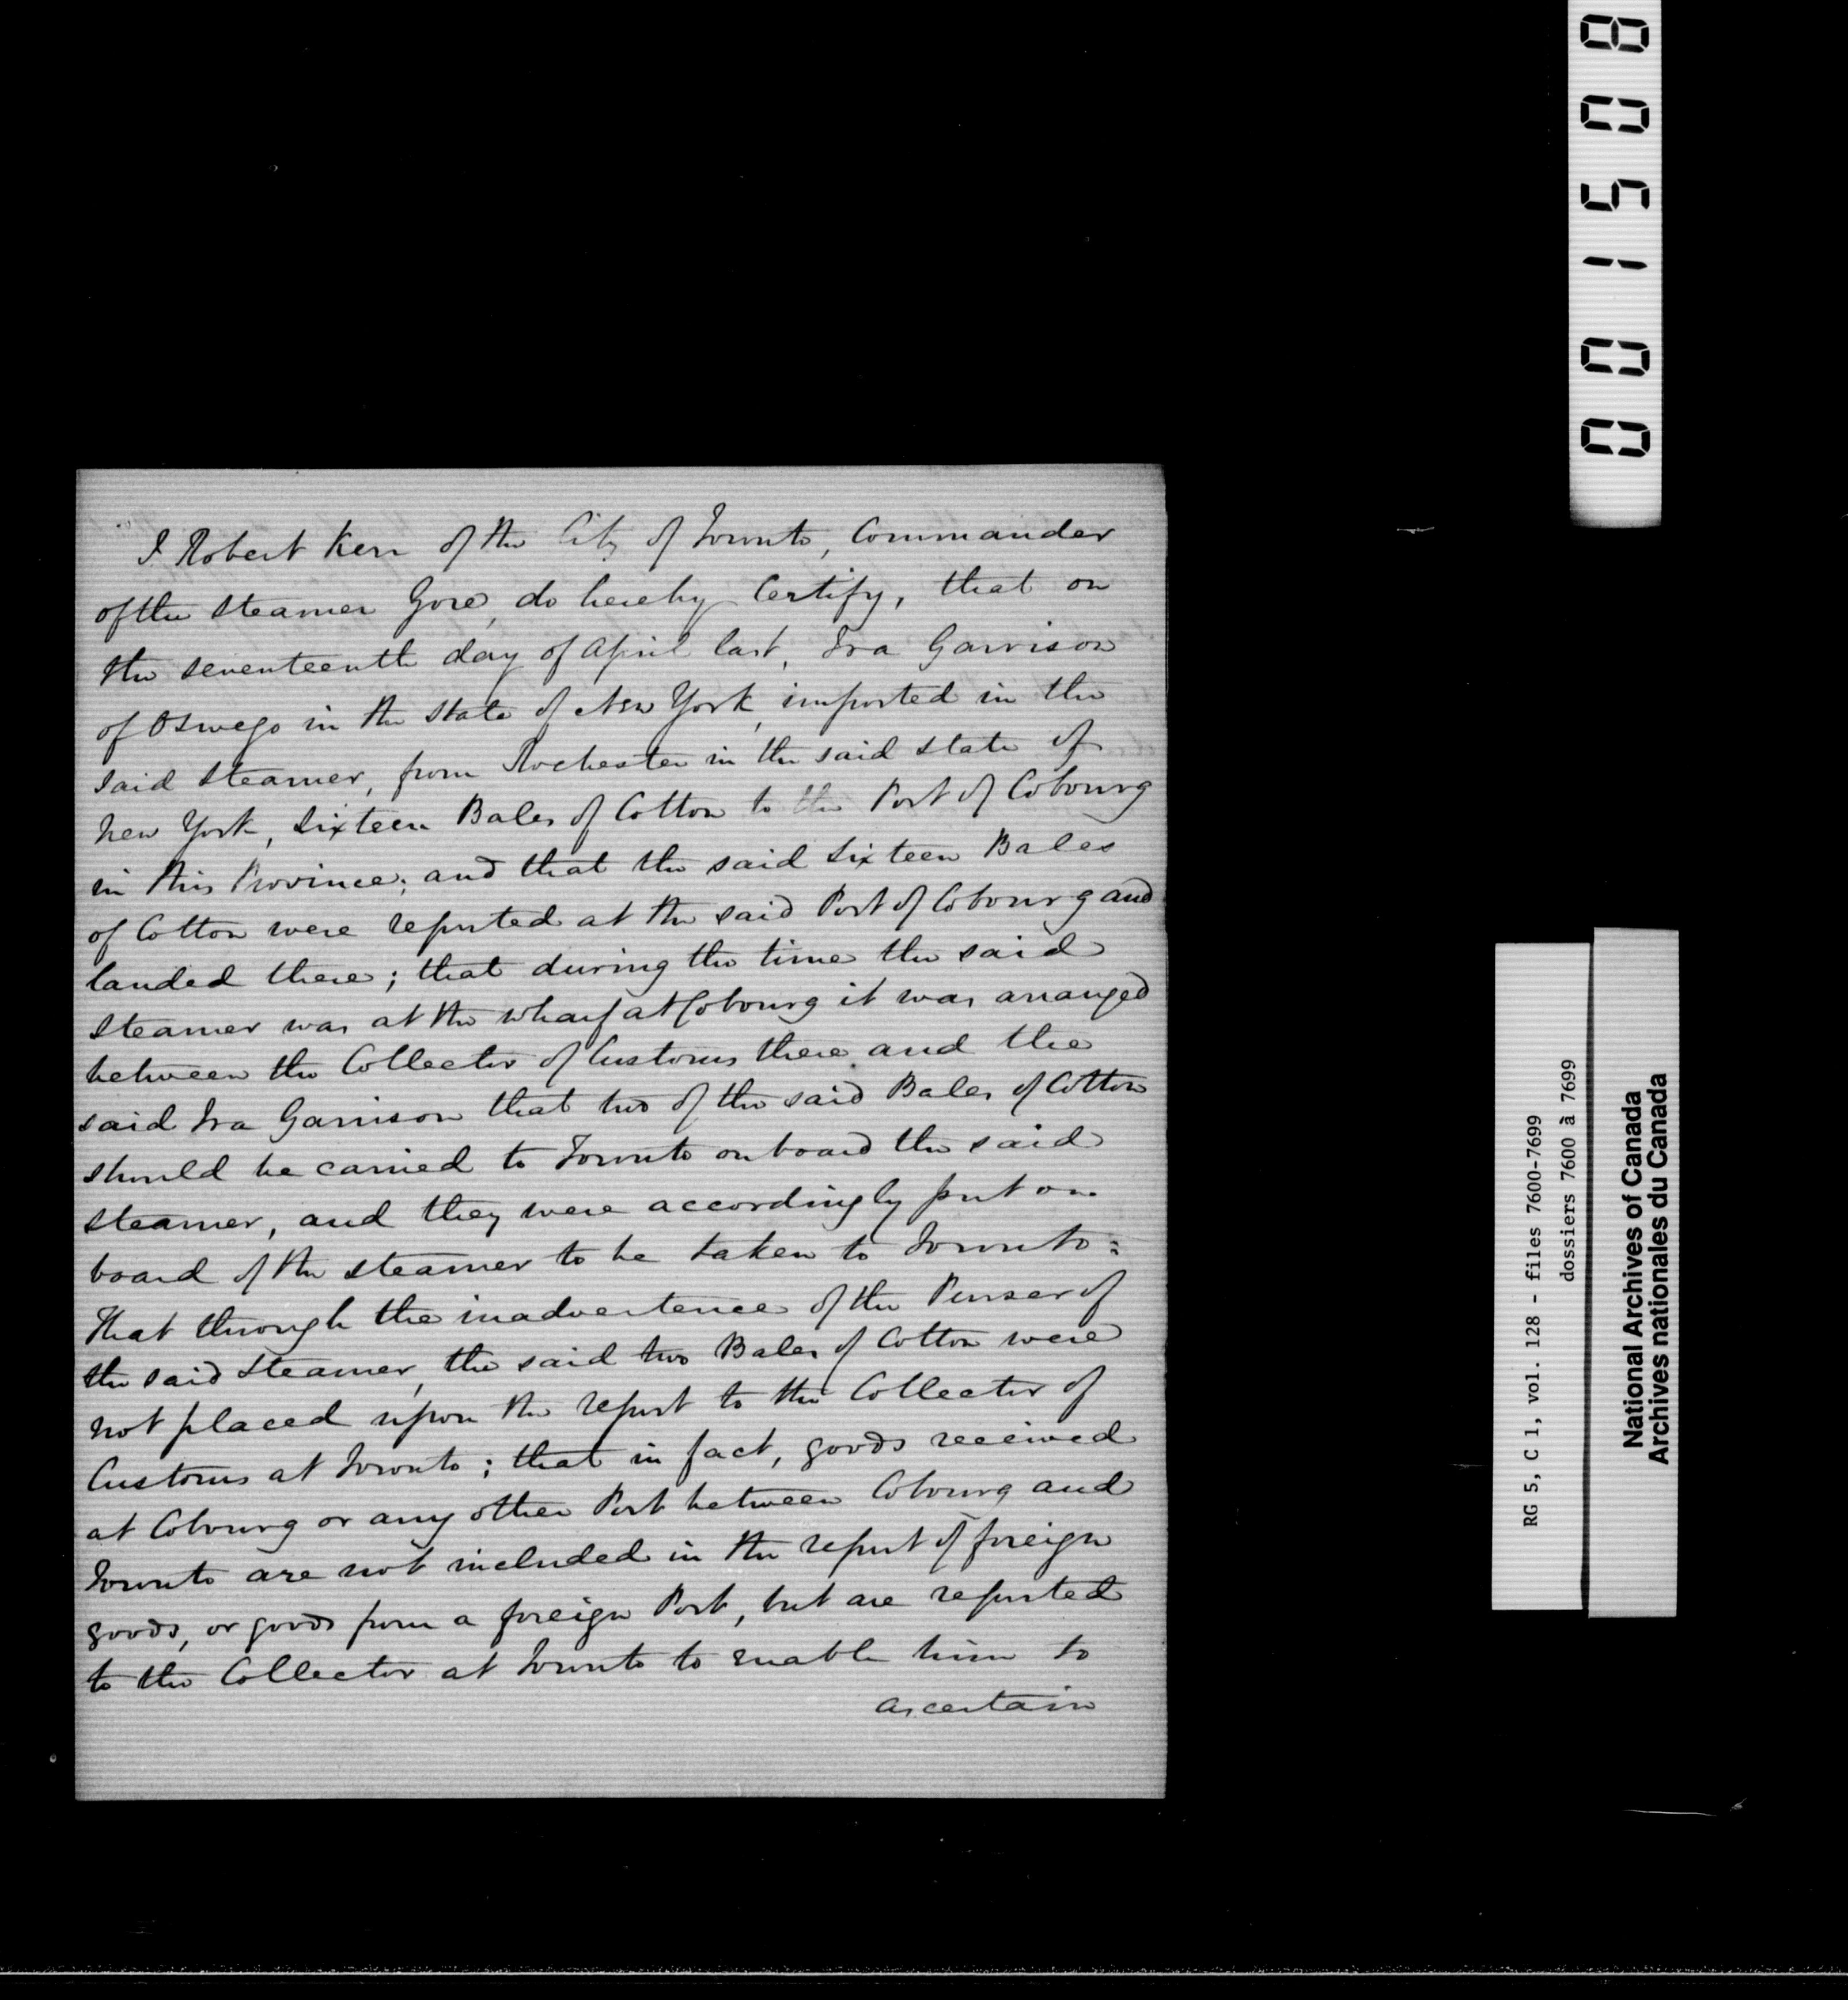 I Robert Kerr of the City of Toronto, Commander
of the Steamer Gore, do hereby Certify, that on
the seventeenth day of April last, Ira Garrison
of Oswego in the State of New York, imported in the
said Steamer, from Rochester in the said State of
New York, Sixteen Bales of Cotton to the Port of Cobourg
in this Province; and that the said Sixteen Bales
of Cotton were reported at the said Port of Cobourg and
landed there; that during the time the said
Steamer was at the wharf at Cobourg it was arranged
between the Collector of Customs there and the
said Ira Garrison that two of the said Bales of Cotton
should be carried to Toronto on board the said
Steamer, and they were accordingly put on
board of the Steamer to be taken to Toronto:
That through the inadvertence of the Purser of
the said Steamer, the said two Bales of Cotton were
not placed upon the report to the Collector of
Customs at Toronto; that in fact, goods received
at Cobourg or any other Port between Cobourg and
Toronto are not included in the report of foreign
goods, or goods from a foreign Port, but are reported
to the Collector at Toronto to enable him to
ascertain
001508
RG 5, C 1, vol. 128 - files 7600-7699
dossiers 7600 à 7699
National Archives of Canada
Archives nationales du Canada